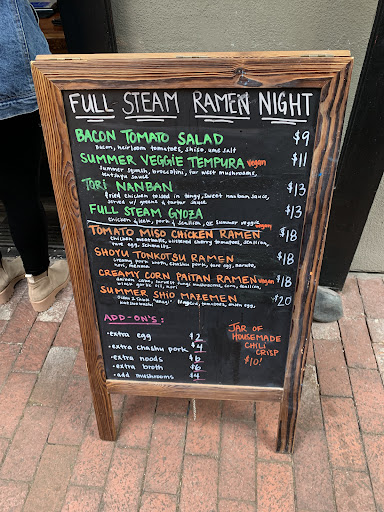 FULL STEAM RAMEN NIGHT
BACON TOMATO SALAD $9
bacon, heirloom tomatoes, shiso, ume salt
SUMMER VEGGIE TEMPURA vegan $11
summer squash, broccolini, far west mushrooms,
tentsuyu sauce
TORI NANBAN $13
fried chicken tossed in tangy, sweet nanban sauce,
served w/ greens & tartar sauce
FULL STEAM GYOZA $13
chicken & leek, pork & scallion, or summer veggie vegan
TOMATO MISO CHICKEN RAMEN $18
chicken meatballs, blistered cherry tomatoes, scallion,
egg,
SHOYU TONKOTSU RAMEN $18
creamy pork broth, chashu pork, tare egg, naruto,
nori, menma
CREAMY CORN PAITAN RAMEN vegan $18
corn, mushrooms, corn, scallion,
garlic oil, nori
SUMMER SHIO MAZEMEN $20
tomatoes, onsen egg,
ADD-ON'S:
·extra egg $2
·extra chashu pork $4
·extra noods $6
·extra broth $6
·add mushrooms $4
JAR OF
HOUSEMADE
CHILI
CRISP
$10!